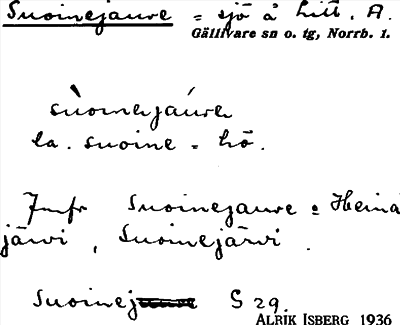 Suoinejaure = sjö å litt. A.
Gällivare sn o. tg, Norrb. 1.
sùoinejáure
la. suoine = hö.
Jmfr Suoinejaure = Heinä
järvi, Suoinejärvi.
Suoinej S 29.
ALRIK ISBERG 1936